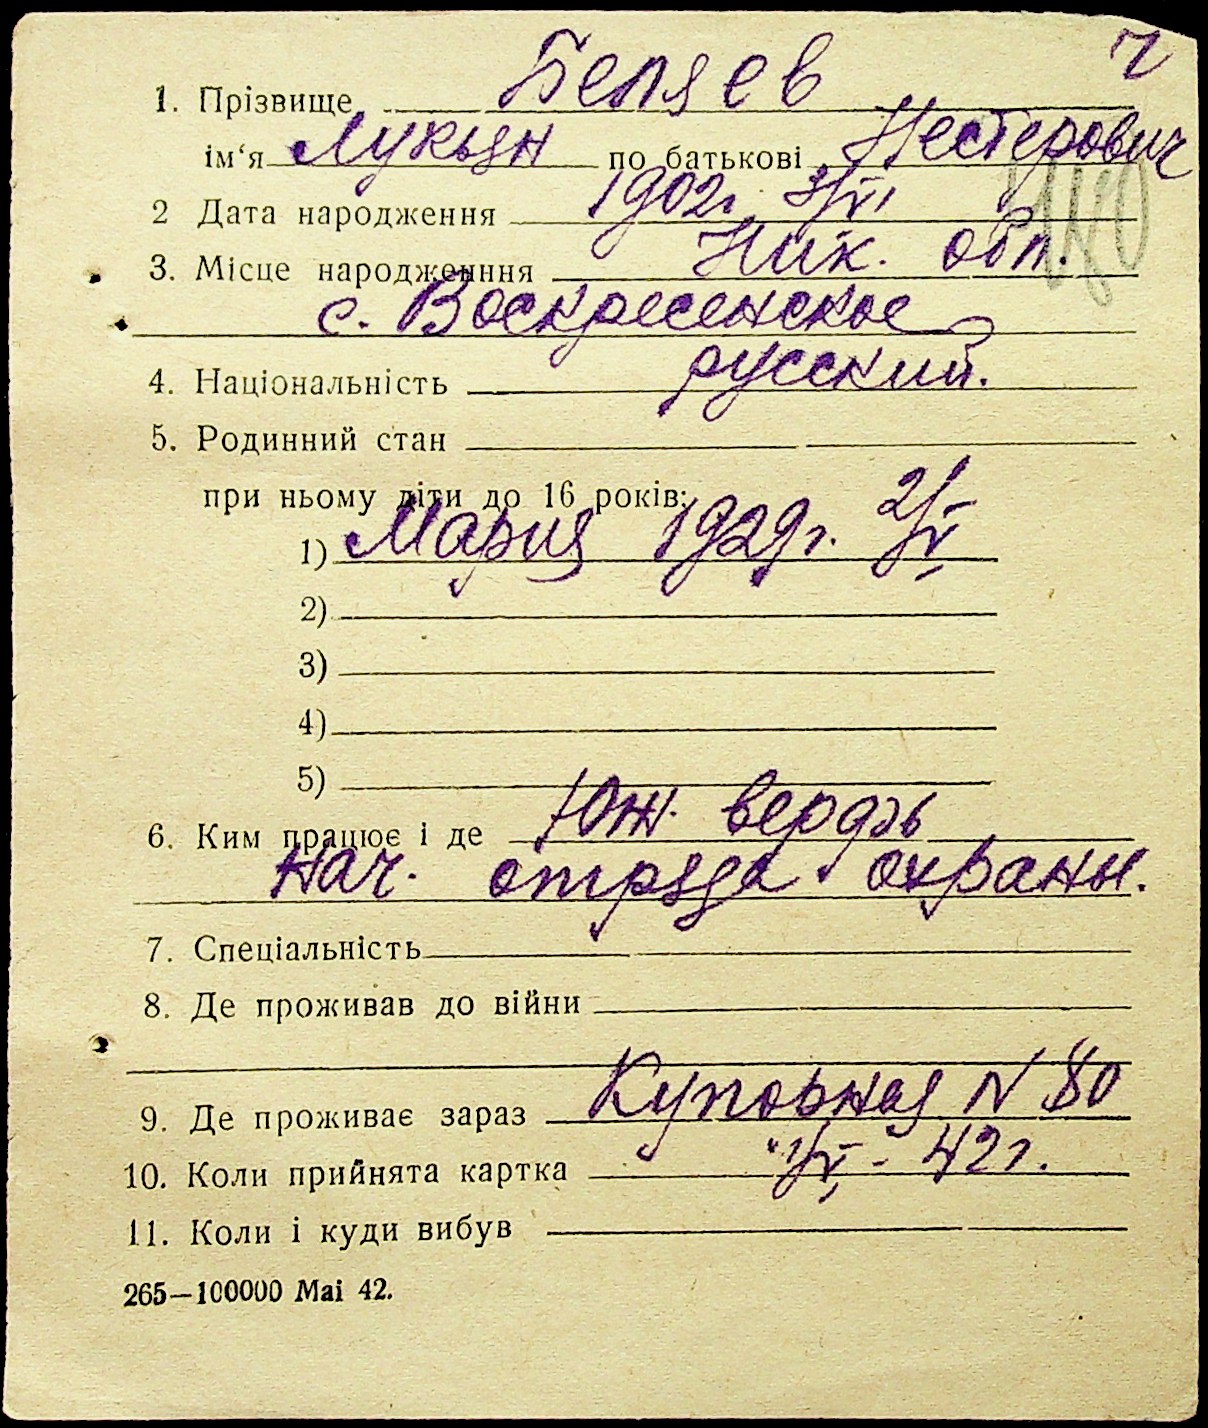 ч
1. Прізвище Беляев
ім‘я Лукьян по батькові Нестерович
2 Дата народження 1902г. 3/VI
3. Місце народженння Ник. обл.
с. Воскресенское
4. Національність русский.
5. Родинний стан
при ньому діти до 16 років:
1) Мария 1929г. 2/V
2)
3)
4)
5)
6. Ким працює і де Юж. верфь
нач. отряда охраны.
7. Спеціальність
8. Де проживав до війни
9. Де проживає зараз Купорная N 80
10. Коли прийнята картка 1/V - 42г.
11. Коли і куди вибув
265—100000 Mai 42.